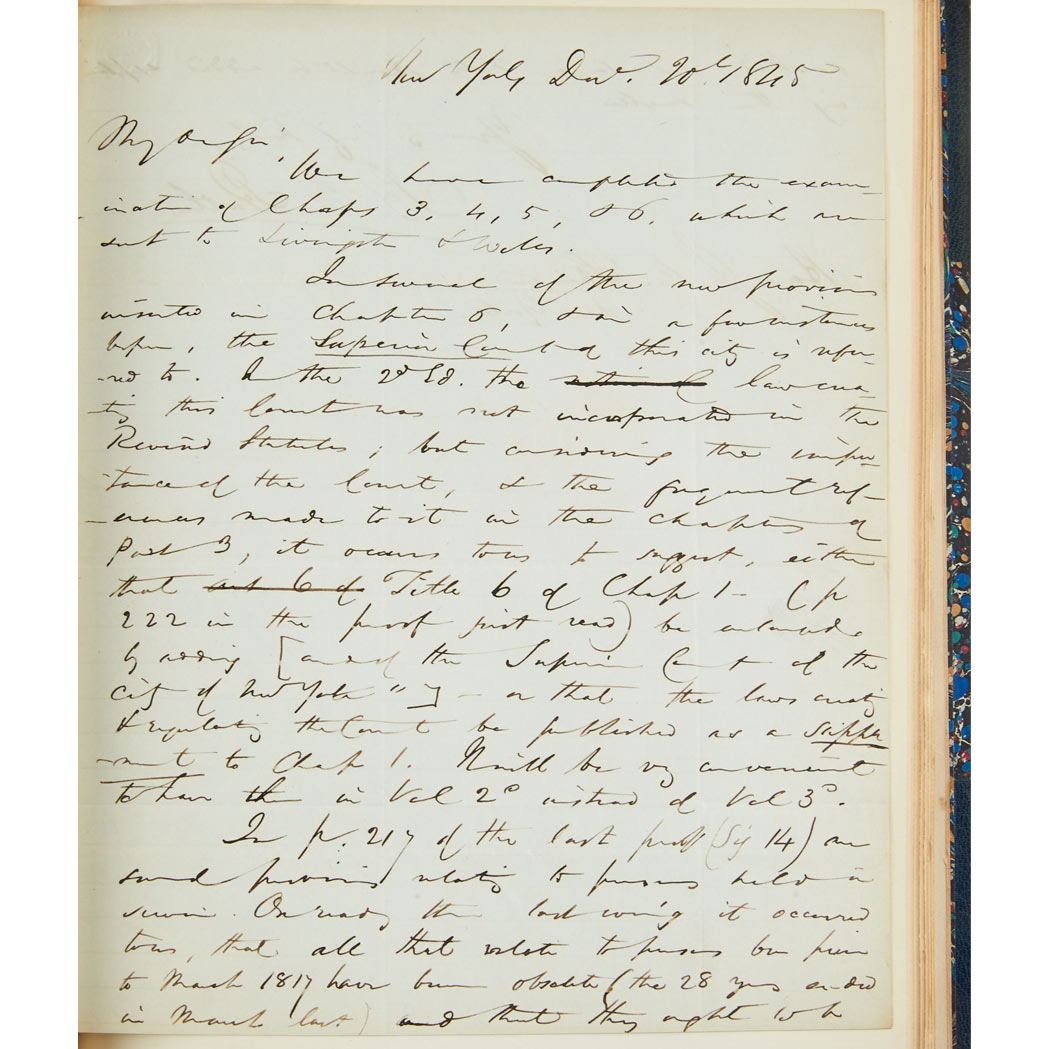 New York, Decr. 20th. 1845
My dr Sir,
We have completed the exam-
ination of Chaps 3, 4, 5, & 6, which are
sent to Livingston & Wells.
In several of the new provisions
inserted in Chapter 6, & in a few instances
before, the Superior Court of this city is refer-
-red to. In the 2d Ed. the law crea-
-ting this Court was not incorporated in the
Revised Statutes; but considering the impor-
-tance of the Court, & the frequent ref-
-erences made to it in the chapters of
Part 3, it occurs to us to suggest, either
that art 6 of Title 6 of Chap 1 - (p
222 in the proof just read) be extended
by adding [and of the Superior Court of the
City of New York "] - or that the laws creating
& regulating the Court be published as a supple
-ment to Chap 1. It will be very convenient
to have them in Vol 2d instead of Vol 3d.
In p. 217 of the last proof (Sig 14) are
several provisions relating to persons held in
service. On reading them last evening it occurred
to us, that all that relate to persons born prior
to March 1817 have been obsolete (the 28 years ended
in March last) and that they ought to be